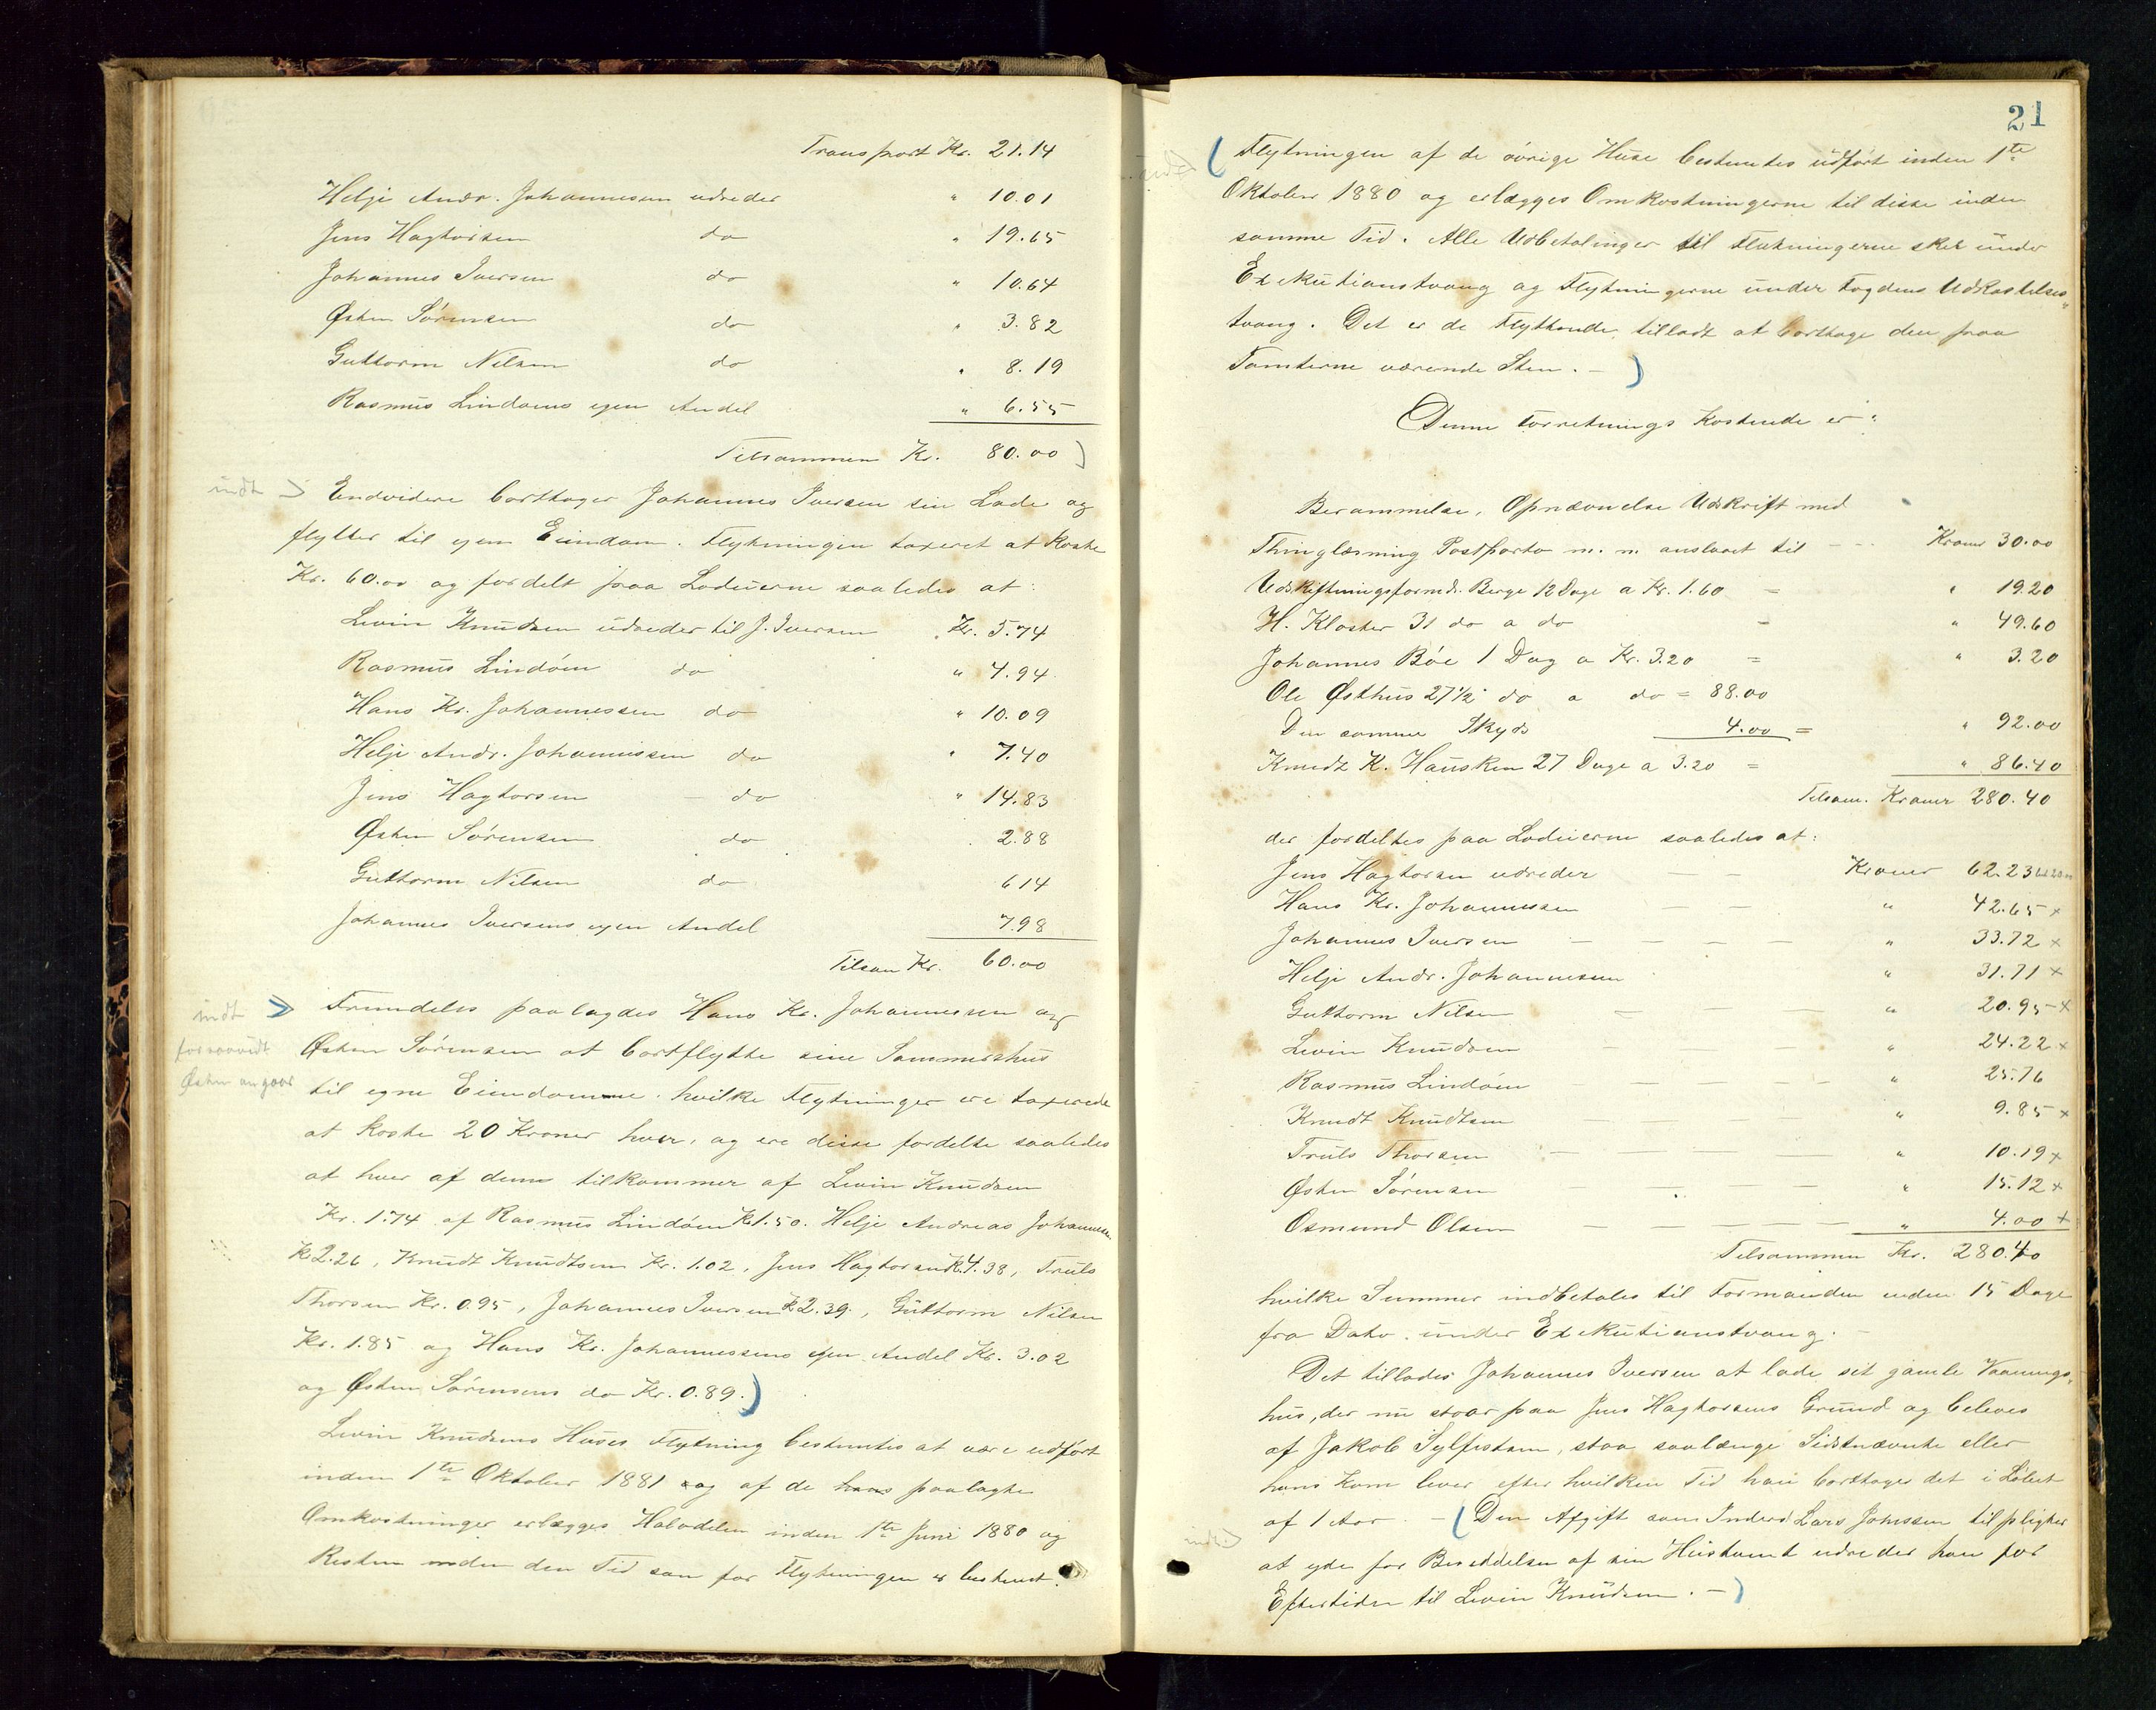 Transport Kr. 21.14
Helje Andr. Johannesen udreder " 10.01
Jens Hagtorsen do " 19.65
Johannes Iversen do " 10.64
Østen Sørensen do " 3.82
Guttorm Nilsen do " 8.19
Rasmus Lindøens egen Andel " 6.55
Tilsammen Kr. 80.00)
indt > Endvidere borttager Johannes Iversen sin Lade og
flytter til egen Eiendom. Flytningen taxeret at koste
Kr. 60.00 og fordelt paa Lodeierne saaledes at:
Levin Knudsen udreder til J. Iversen Kr. 5.74
Rasmus Lindøen do " 4.94
Hans Kr. Johannessen do " 10.09
Helje Andr. Johannissen do " 7.40
Jens Hagtorsen do " 14.83
Østen Sørensen do 2.88
Guttorm Nilsen do 614
Johannes Iversens egen Andel 7.98
Tilsam Kr. 60.00
indt > Fremdeles paalagdes Hans Kr. Johannessen og
forsaavidt Østen Sørensen at bortflytte sine Sommershus
Østen angaar til egne Eiendomme. hvilke Flytninger ere taxerede
at koste 20 Kroner hver, og ere disse fordelte saaledes
at hver af dem tilkommer af Levin Knudsen
Kr. 1.74 af Rasmus Lindøen K 1.50. Helje Andreas Johannesen
K 2.26, Knudt Knudtsen Kr. 1.02, Jens Hagtorsen K. 4.38, Truls
Thorsen Kr. 0.95, Johannes Iversen K 2.39., Guttorm Nilsen
Kr. 1.85 og Hans Kr. Johannessens egen Andel Kr. 3.02
og Østen Sørensens do Kr. 0.89.)
Levin Knudsens Huses Flytning bestemtes at være udført
inden 1te Oktober 1881 og af de hans paalagte
Omkostninger erlægges Halvdelen inden 1te Juni 1880 og
Resten inden den Tid som for Flytningen er bestemt.
21
( Flytningen af de øvrige Huse bestemtes udført inden 1te
Oktober 1880 og erlægges Omkostningerne til disse inden
samme Tid. Alle Udbetalinger til Flytningerne sker under
Exekutionstvang og Flytningerne under Fogdens Udkastelses"
tvang. Det er de Flyttende tilladt at borttage den paa
Tomterne værende Sten. – )
Denne Forretnings Kostende er:
Berammelse, Opnævnelse Udskrift med
Thinglæsning Postporto m. m. anslaaet til Kroner 30.00
Udskiftningsformd. Berge 12 Dage a Kr. 1.60 = " 19.20
H. Kloster 31 do a do - " 49.60
Johannes Bøe 1 Dag a Kr. 3.20 = " 3.20
Ole Østhus 27 1/2 do a do = 88.00
Den samme Skyds 4.00 = " 92.00
Knudt K. Hausken 27 Dage a 3.20 = " 86.40
Tilsam. Kroner 280.40
der fordeltes paa Lodeierne saaledes at:
Jens Hagtorsen udreder Kroner 62.23
Hans Kr. Johannessen " 42.65 x
Johannes Iversen " 33.72 x
Helje Andr. Johannesen " 31.71 x
Guttorm Nilsen " 20.95 x
Levin Knudsen " 24.22 x
Rasmus Lindøen " 25.76
Knudt Knudtsen " 9.85 x
Truls Thorsen " 10.19 x
Østen Sørensen " 15.12 x
Osmund Olsen " 4.00 x
Tilsammen Kr. 280.40
hvilke Summer indbetales til Formanden inden 15 Dage
fra Dato. under Exekutionstvang. –
Det tillades Johannes Iversen at lade sit gamle Vaanings"
hus, der nu staar paa Jens Hagtorsens Grund og beboes
af Jakob Sylfestsen, staa saalænge Sidstnævnte eller
hans Kone lever efter hvilken Tid han borttager det i Løbet
af 1 Aar. – ( Den Afgift som Inders Lars Johnssen tilpligter
at yde for Benyttelsen af sin Hustomt udreder han for
Eftertiden til Levin Knudsen. – )